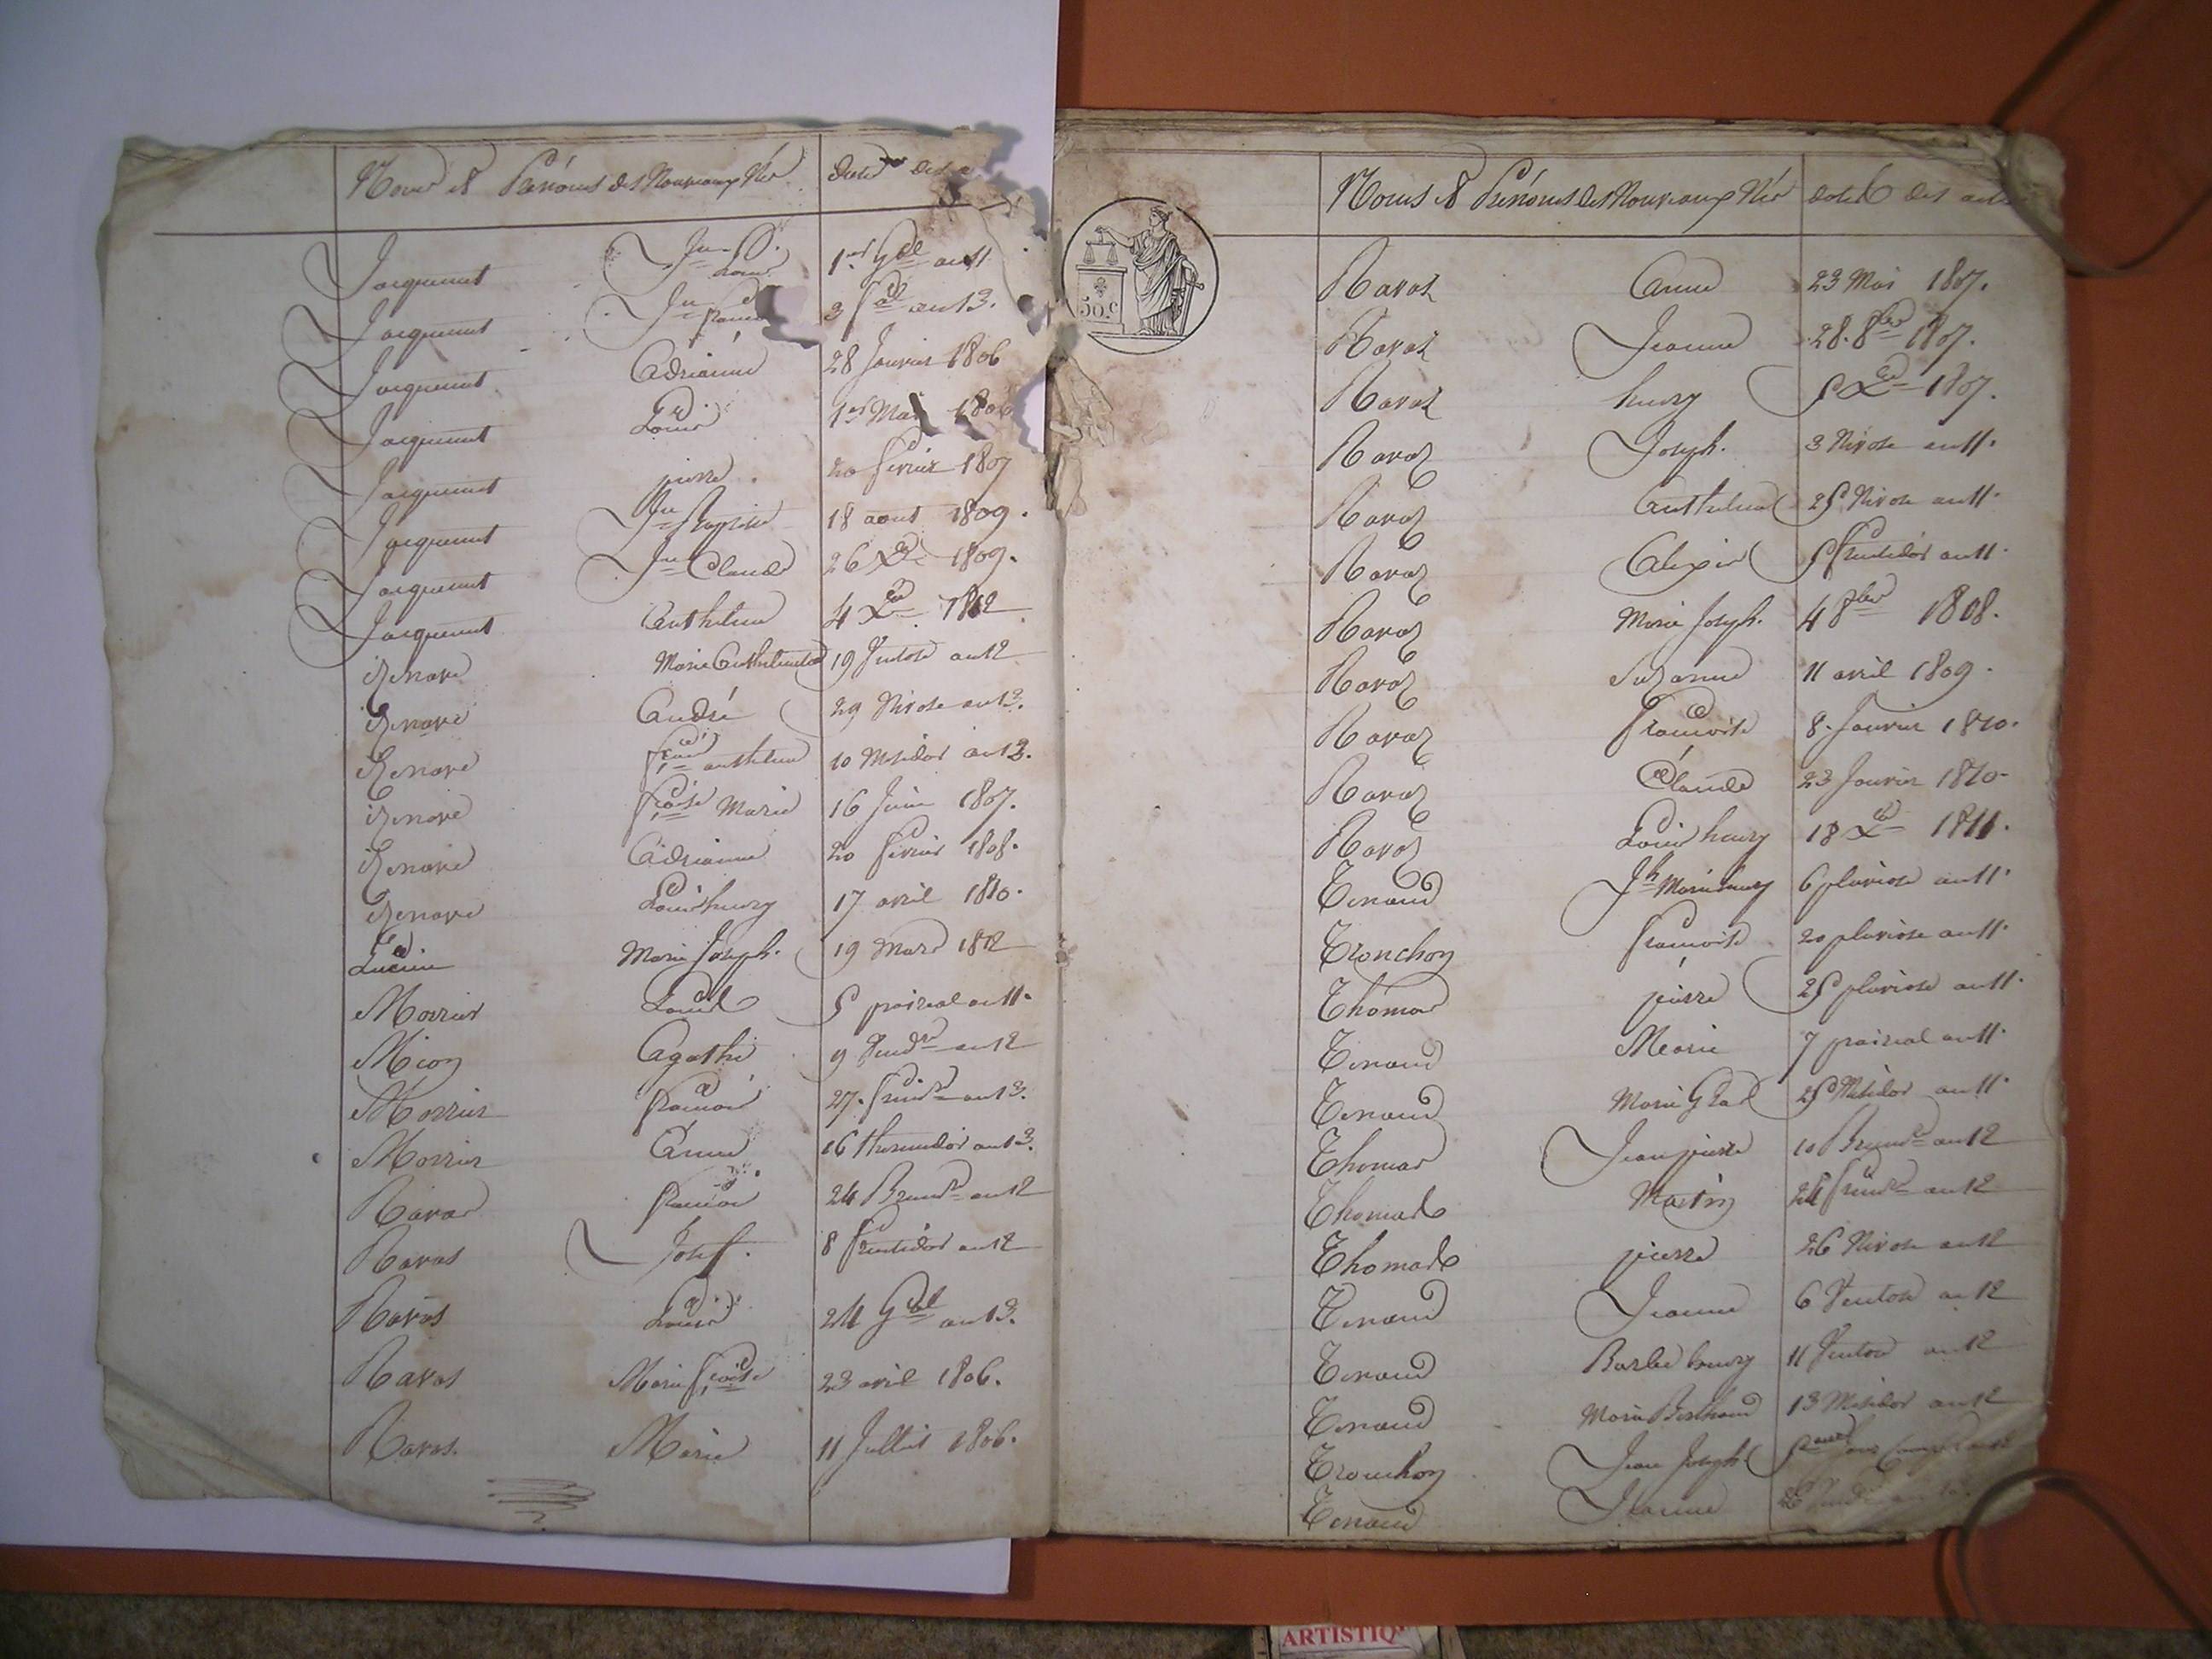 Noms et Prénoms des Nouveaux Nés dates des
Jacquemet Jn Louis 1er Gal an 11
Jacquemet Jn 3 an 13.
Jacquemet Adrianne 28 Janvier 1806
Jacquemet Louis 1er Mai 1806
Jacquemet pierre. 20 fevrier 1807
Jacquemet Jn Baptiste 18 aout 1809.
Jacquemet Jn Claude 26 Xbre 1809.
Jacquemet Anthelme 4 Xbre 1812
Genave Marie Anthelmette 19 Ventose an 12
Genave André 29 Nivose an 13.
Genave anthelme 10 Messidor an 13.
Genave fcoise Marie 16 Juin 1807.
Genave Adrianne 20 fevrier 1808.
Genave Louis henry 17 avril 1810.
Marie Joseph. 19 Mars 1812
Morrier Louis 5 prairial an 11.
Mion Agathe 9 Vendre an 12
Morrier francois 27. frimre an 13.
Morrier Anne 16 thermidor an 13.
Ravas francois 24 Brumre an 12
Ravas Josef. 8 fructidor an 12
Ravas Louis 24 Gal an 13.
Ravas Marie fcoise 23 avril 1806.
Ravas. Marie 11 Juillet 1806.
Noms et Prénoms des Nouveaux Nés dates des actes
50 c
Ravat Anne 23 Mai 1807.
Ravat Jeanne 28. 8bre 1807.
Ravat henry 5 Xbre 1807.
Ravaz Joseph. 3 Nivose an 11.
Ravaz Anthelme 25 Nivose an 11.
Ravaz Alexis 5 fructidor an 11.
Ravaz Marie Joseph. 4 8bre 1808.
Ravaz Suzanne 11 avril 1809.
Ravaz francoise 8. Janvier 1810.
Ravaz Claude 23 Janvier 1810.
Ravaz Louis henry 18 Xbre 1811.
Tenaud Jh Marie henry 6 pluviose an 11.
Tronchon francoise 20 pluviose an 11.
Thomas pierre 25 pluviose an 11.
Tenaud Marie 7 prairial an 11.
Tenaud Marie 25 Messidor an 11.
Thomas Jean pierre 10 Brumre an 12
Thomas Martin 24 frimre an 12
Thomas pierre 26 Nivose an 12
Tenaud Jeanne 6 Ventose an 12
Tenaud Barbe henry 11 Ventose an 12
Tenaud Marie 13 Messidor an 12
Tronchon Jean Joseph
Tenaud Jeanne
ARTISTIQ